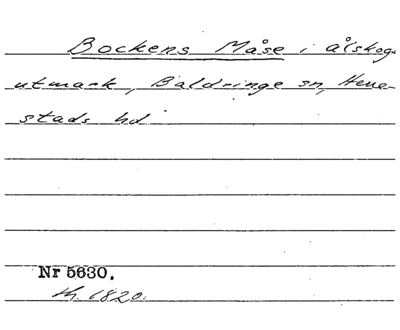 Bockens Måse i ålskogs
utmark, Baldringe sn, Herre-
stads hd
Nr 5630.
1820.